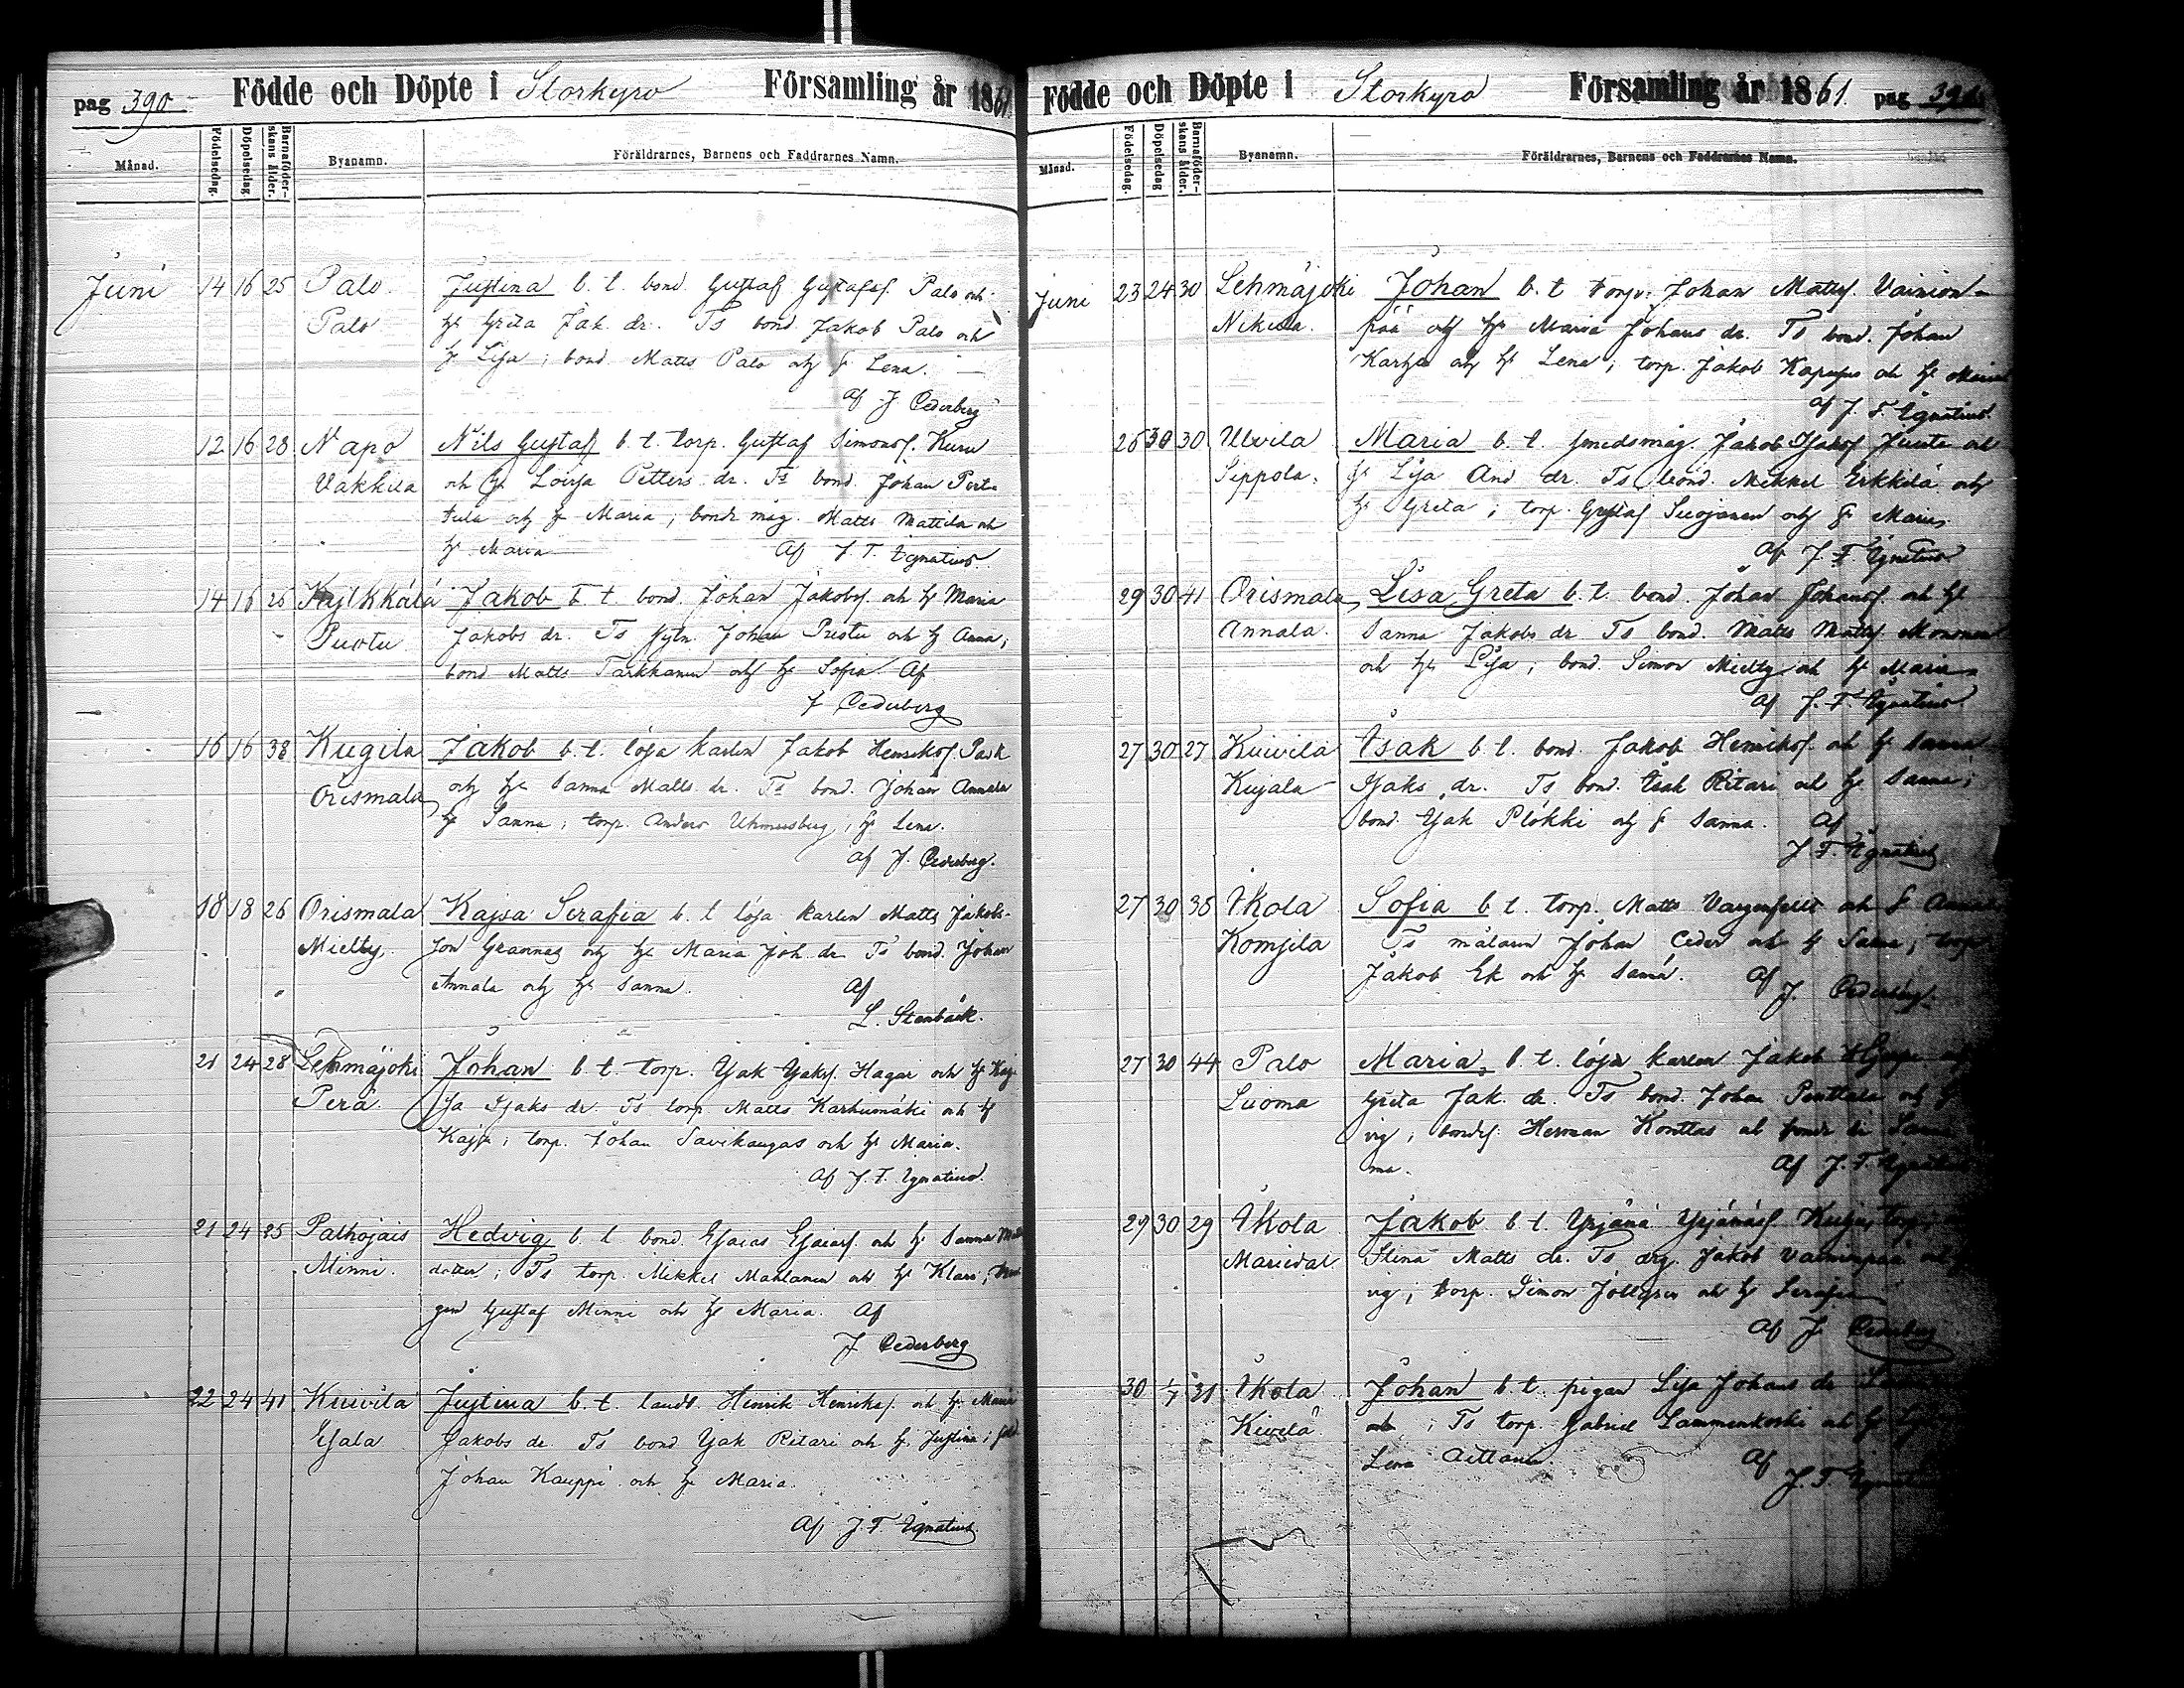 pag 390
Födde och Döpte i Storkyro Församling år 1861.
Månad.
Födelsedag.
Döpelsedag
Barnaföder-
skans ålder.
Byanamn.
Föräldrarnes, Barnens och Faddrarnes Namn.
Juni 14 16 25 Palo Justina b. t. bond. Gustaf Gustafss. Palo och
Palo hu Greta Jak. dr. Ts bond. Jakob Palo och
h Lisa; bond. Matts Palo och h Lena.
af J Cederberg
12 16 28 Napo Nils Gustaf b. t. torp. Gustaf Simonss. Kuru
Vakkila och hu Lovisa Petters dr. Ts bond. Johan
tula och h Maria; bonde måg. Matts Mattila och
hu Maria af J. F. Ignatius.
14 16 26 Jakob b. t. bond. Johan Jakobss. och h Maria
Puotu Jakobs dr. Ts Johan och h Anna;
bond Matts Tarkkanen och hu Sofia. Af
J Cederberg
16 16 38 Kugila Jakob b. t. lösa karlen Jakob Henriksss. Pask
Orismala och hu Sanna Matts dr. Ts bond. Johan Annala
hu Sanna; torp. Anders h Lena.
af J. Cederberg.
18 18 26 Orismala Kajsa Serafia b. t lösa karlen Matts Jakobs-
Mielty son Grannas och hu Maria Joh. dr Ts bond. Johan
Annala och hu Sanna. af
L. Stenbäck.
21 24 28 Lehmäjoki Johan b. t. torp. Isak Isakss. Hagar och h Kaj-
Perä sa Isaks dr. Ts torp Matts Karhumäki och h
Kajsa; torp. Johan Savikangas och hu Maria.
af J. F. Ignatius.
21 24 35 Palhojais Hedvig b. t bond. Esaias Esaiass. och h Sanna
Minni. dotter; Ts torp. Mikkel Mahlanen och hu Klara;
gen Gustaf Minni och h Maria. Af
J Cederberg
22 24 41 Kuivila Justina b. t. landb. Henrik Henrikss. och h Maria
Esala Jakobs dr Ts bond Isak Ritari och h Justina;
Johan Kauppi och h Maria.
Af J. F. Ignatius.
Födde och Döpte i Storkyro Församling år 1861. pag 391
Månad.
Födelsedag.
Döpelsedag
Barnaföder-
skans ålder.
Byanamn.
Föräldrarnes, Barnens och Faddrarnes Namn.
Juni 23 24 30 Lehmäjoki Johan b. t torp. Johan Mattss. Vainion-
Nikula. pää och hu Maria Johans dr. Ts bond. Johan
och h Lena; torp. Jakob och h
af J. F. Ignatius.
26 30 30 Ulvila Maria b. t. smedsmåg. Jakob Isakss. och
Sippola. h Lisa And dr. Ts bond. Mikkel Erkkilä och
h Greta; torp. Gustaf Suojanen och h Maria.
af J. F. Ignatius
29 30 41 Orismala Lisa Greta b. t. bond. Johan Johanss. och h
Annala. Sanna Jakobs dr. Ts bond. Matts Mattss. Mononen
och hu Lisa; bond. Simon Mielty och h Maria
af J. F. Ignatius
27 30 27 Kuivila Isak b. t. bond. Jakob Henrikss. och h Sanna
Kujala Isaks dr. Ts bond. Isak Ritari och h Sanna;
bond. Isak Plökki och h Sanna. Af
J. F. Ignatius
27 30 36 Ikola Sofia b t. torp. Matts och h
Komsila Ts målaren Johan Ceder och h torp
Jakob Ek och h Sanna. af
J. Cederberg.
27 30 44 Palo Maria, b. t. lösa karlen Jakob
Luoma Greta Jak. dr. Ts bond. Johan Penttala och h
vig; bondes. Herman Konttas och bonde dr Sanna
ma. Af J. F. Ignatius
29 30 29 Ikola Jakob b t. Yrjänä Yrjänäss.
Mariedal Stina Matts dr. Ts drg. Jakob
vig; torp. Simon och h Serafia
af J Cederberg
30 1/7 31 Ikola Johan b t. pigan Lisa Johans dr
Kivelä och ; Ts torp. Gabriel Lammenkoski och h
Lena Aittanen. Af
J. F. Ignatius